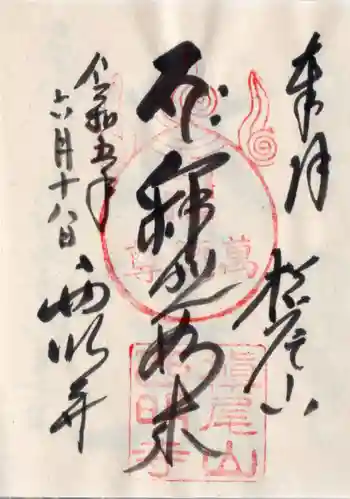 奉拝 槙尾山
釈迦如来
令和五年
六月十八日
西明寺
槇尾山
西明寺